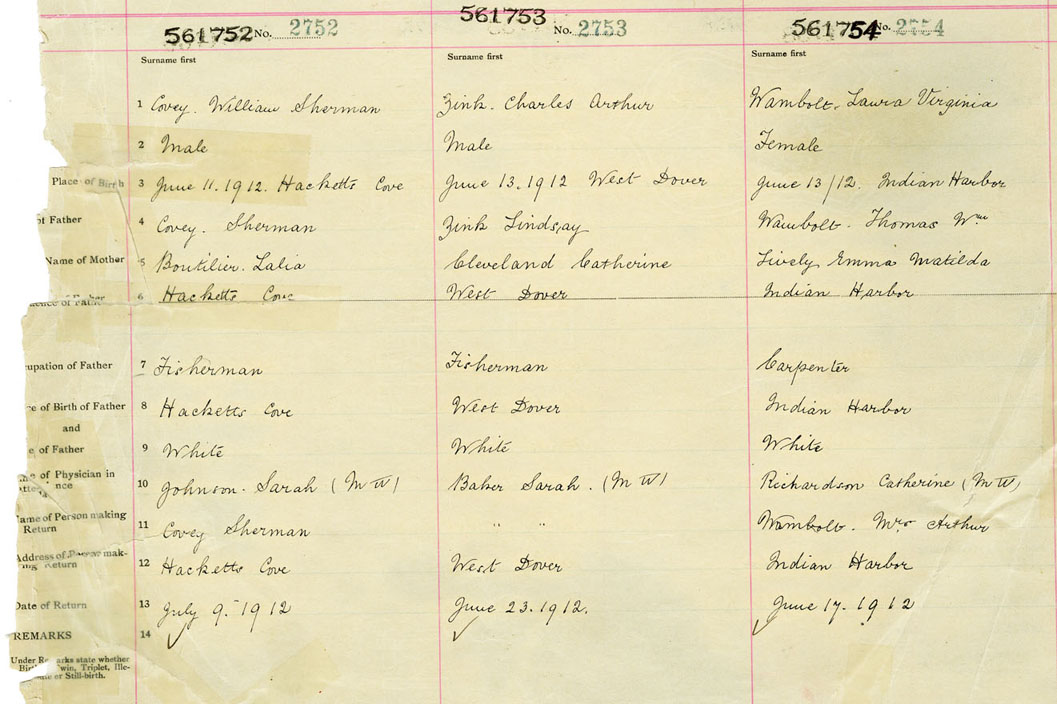 561752 No. 2752 561753 No. 2753 561754 No. 2754
Surname first Surname first Surname first
1 Covey. William Sherman Zink. Charles Arthur Wambolt. Laura Virginia
2 Male Male Female
Place of Birth 3 June 11. 1912. Hacketts Cove June 13. 1912 West Dover June 13/12. Indian Harbor
of Father 4 Covey. Sherman Zink Lindsay Wambolt. Thomas Wm
Name of Mother 5 Boutilier. Lalia Cleveland Catherine Lively Emma Matilda
ence of Father 6 Hacketts Cove West Dover Indian Harbor
upation of Father 7 Fisherman Fisherman Carpenter
ce of Birth of Father 8 Hacketts Cove West Dover Indian Harbor
and
e of Father 9 White White White
of Physician in
nce 10 Johnson. Sarah (M W) Baker Sarah. (M W) Richardson Catherine (M W)
Name of Person making
Return 11 Covey Sherman " " Wambolt. Mrs Arthur
Address of Person mak-
ing Return 12 Hacketts Cove West Dover Indian Harbor
Date of Return 13 July 9. 1912 June 23. 1912. June 17. 1912
REMARKS 14 ✓ ✓ ✓
Under Remarks state whether
Birth Twin, Triplet, Ille-
or Still-birth.